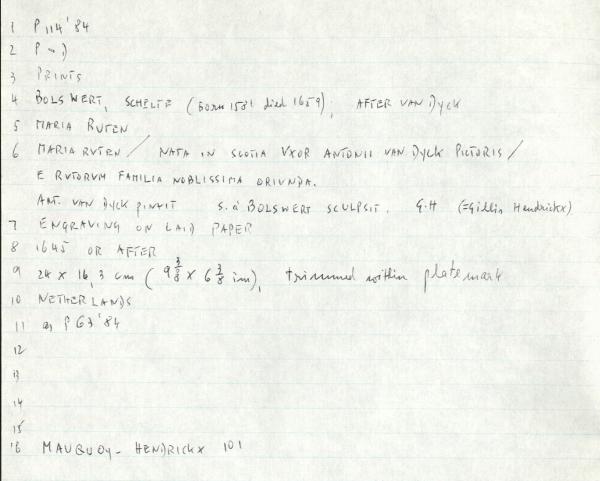 1 P 114'84
2 P
3 PRINTS
4 BOLSWERT, SCHELTE (born 1581 died 1659), AFTER VAN DYCK
5 MARIA RUTEN
6 MARIA RVTEN / NATA IN SCOTIA VXOR ANTONII VAN DYCK PICTORIS /
E RVTORVM FAMILIA NOBLISSIMA ORIUNDA.
ANT. VAN DYCK PINXIT S. à BOLSWERT SCULPSIT. G.H (=Gillis Hendrickx)
7 ENGRAVING ON LAID PAPER
8 1645 OR AFTER
9 24 x 16,3 cm (9 3/8 x 6 3/8 im), trimmed within platemark
10 NETHERLANDS
11 P 63'84
12
13
14
15
16 MAUQUOY-HENDRICKX 101